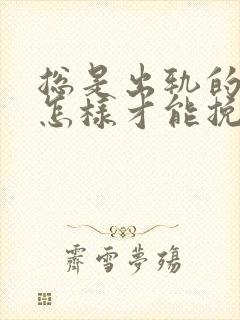 总是出轨的
怎样才能挽
霽雪夢殤